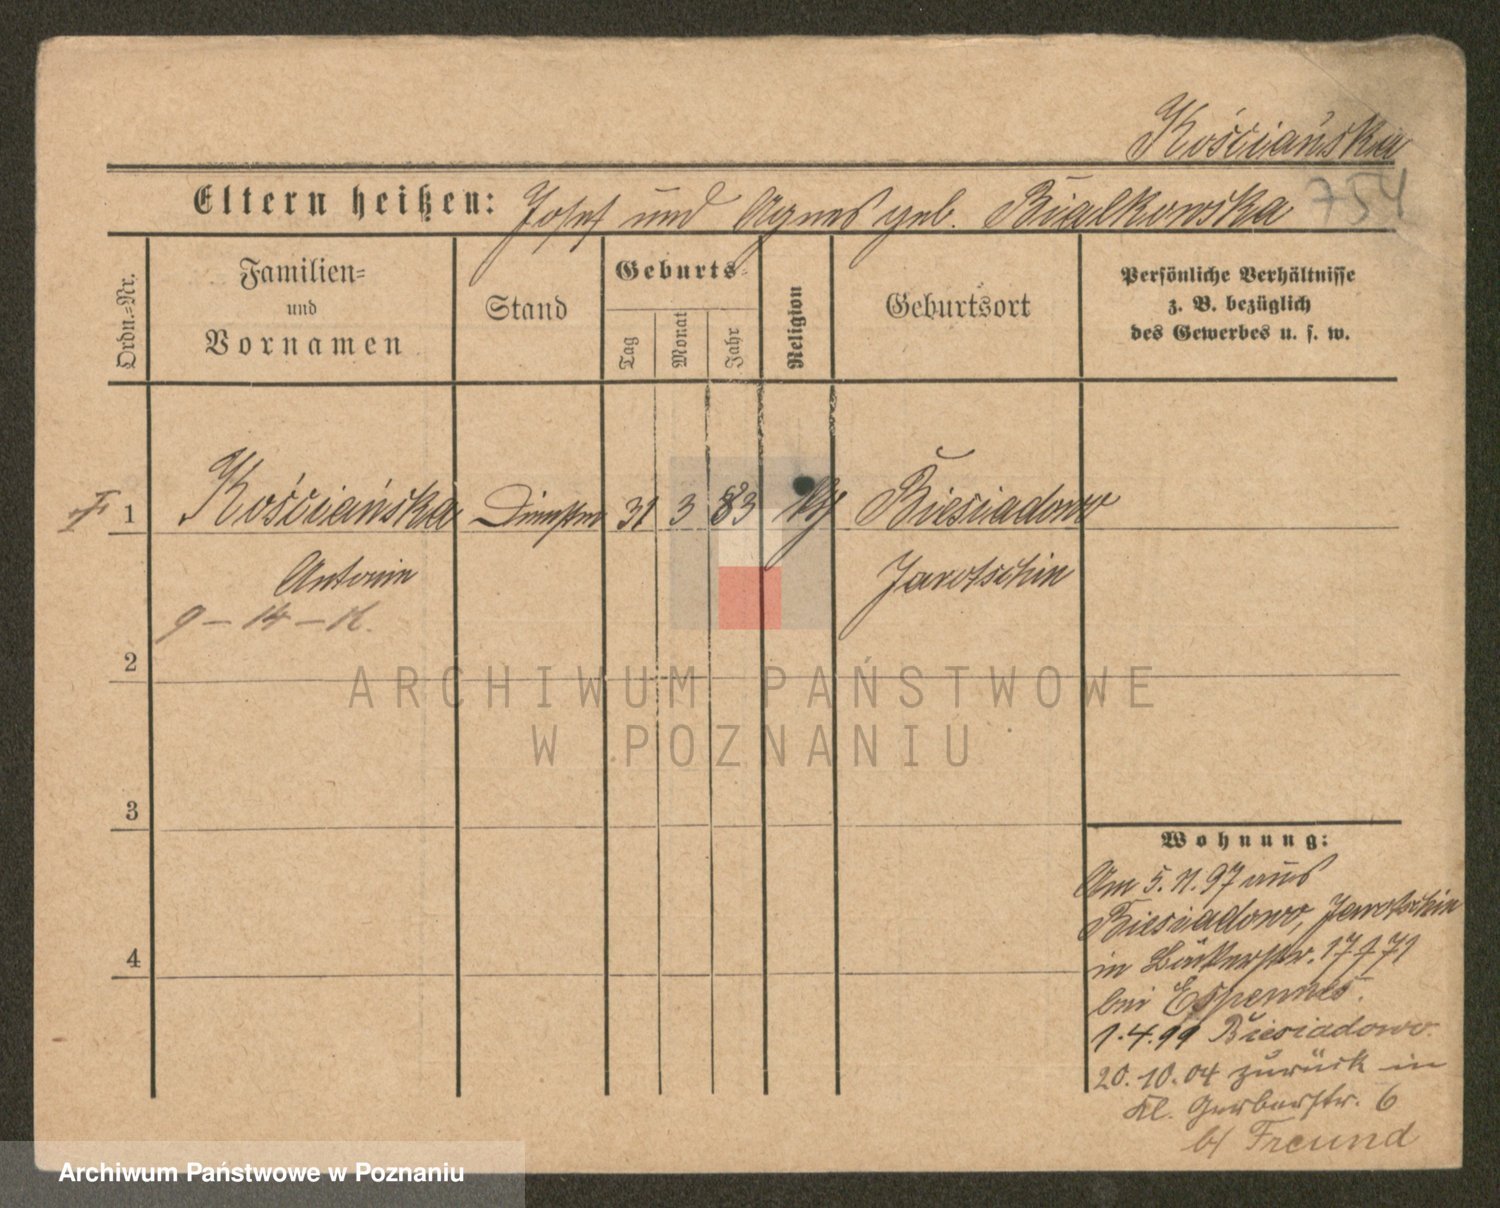 Kościańska
Eltern heißen: Josef und Agnes geb. Bialkowska 754
Ordn.-Nr.
Familien-
und
Vornamen
Stand
Geburts-
Tag
Monat
Jahr
Religion
Geburtsort
Persönliche Verhältnisse
z. B. bezüglich
des Gewerbes u. s. w.
1 Kościańska 31 3 83 Biesiadowo
Antonin Jarotschin
9 – 14 –
2
3
4
Wohnung:
Am 5.11.97 aus
Biesiadowo, Jarotschin
in Bäckerstr. 17
bei
1.4.99 Biesiadowo.
20.10.04 zurück in
Kl. Gerberstr. 6
b/ Freund
ARCHIWUM PAŃSTWOWE
W POZNANIU
Archiwum Państwowe w Poznaniu